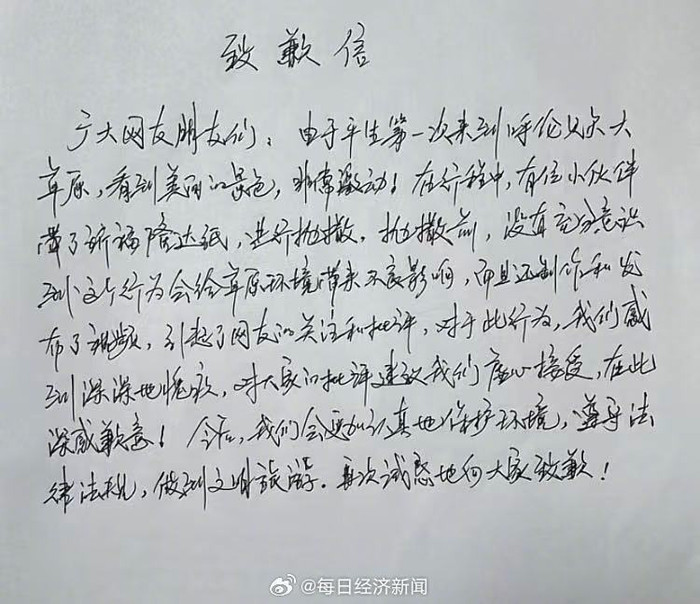 致歉信
广大网友朋友们：由于平生第一次来到呼伦贝尔大
草原，看到美丽的景色，非常激动！在行程中，有位小伙伴
带了祈福隆达纸，进行抛撒，抛撒前，没有充分意识
到这个行为会给草原环境带来不良影响，而且还制作和发
布了视频，引起了网友的关注和批评，对于此行为，我们感
到深深地愧疚，对大家的批评建议我们虚心接受，在此
深感歉意！今后，我们会更加认真地保护环境，遵守法
律法规，做到文明旅游．再次诚恳地向大家致歉！
@每日经济新闻